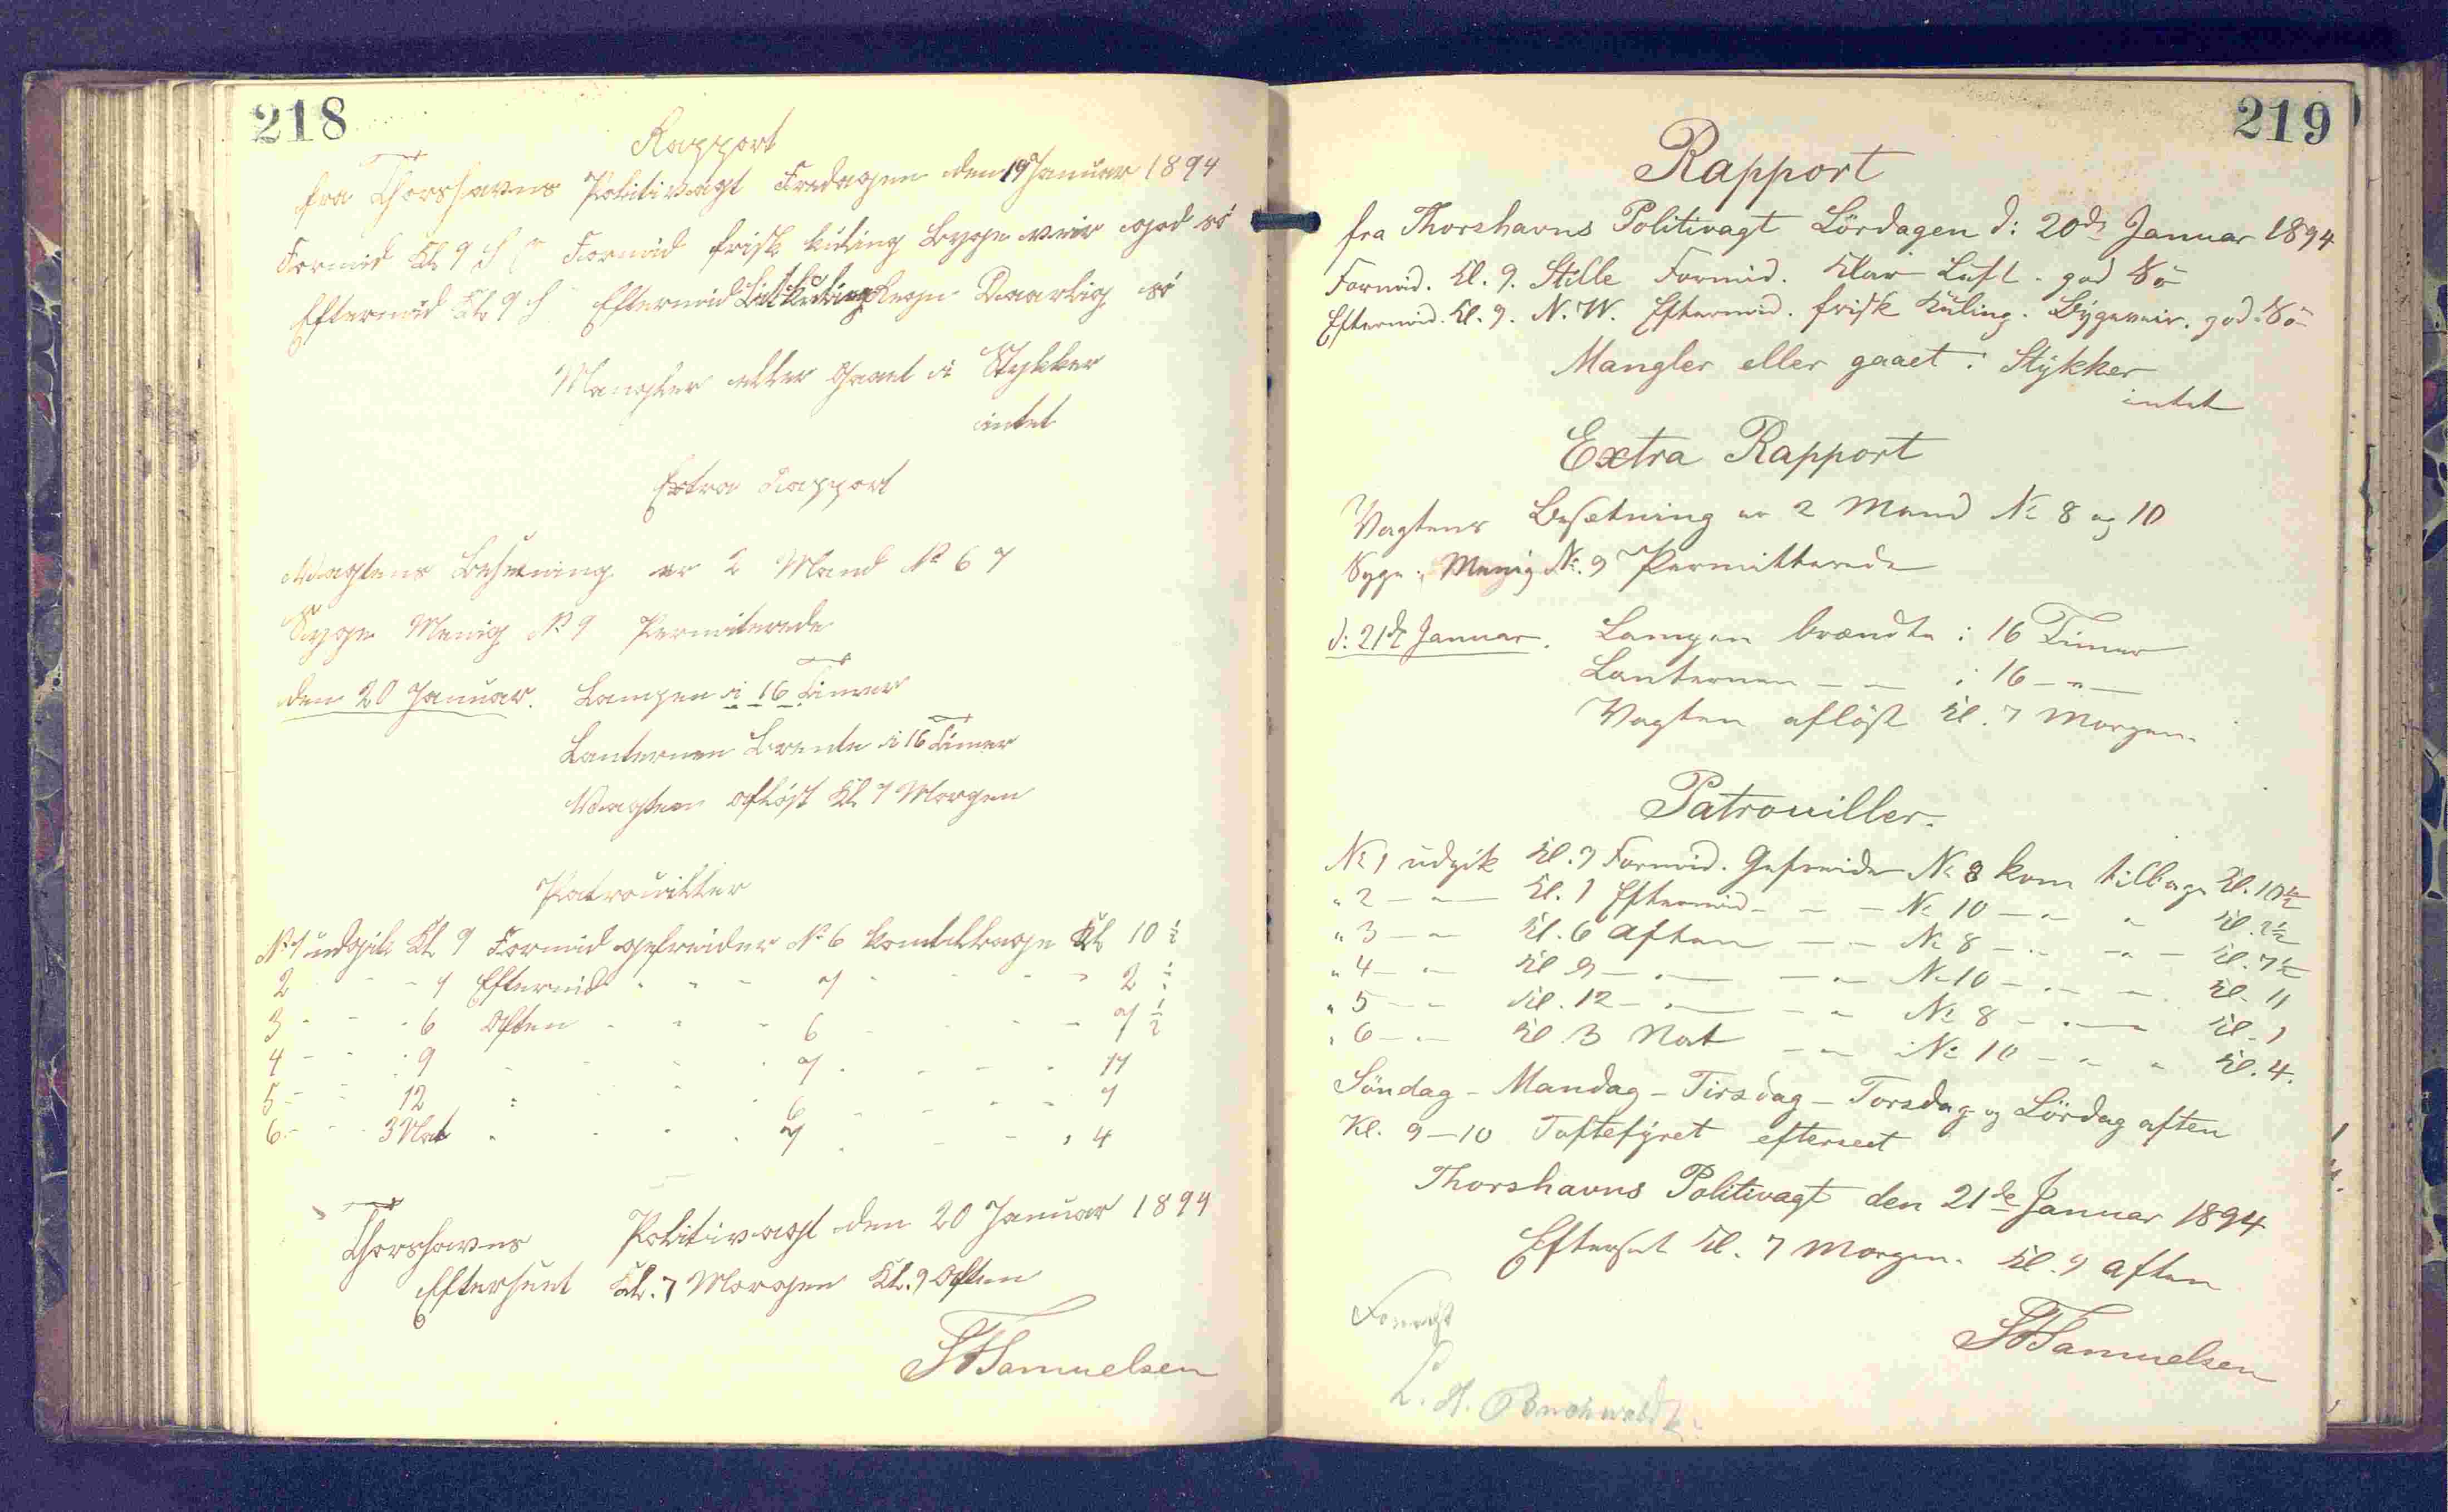 218
Rapport
fra Thorshavns Politivagt Fredagen den 19 Januar 1894
Formid Kl 9 S Formid frisk kuling Byge veir god sö
Eftermid Kl 9 S Eftermid Lidt Kuling Regn Daarlig sö
Mangler eller Gaaet i Stykker
intet
Extra Rapport
Vagtens Besetning er 2 Mand No 6 7
Syge Menig No 9 Permiterede
den 20 Januar. Lampen i 16 Timer
Lanternen Brente i 16 Timer
Vagten afløst Kl 7 Morgen
Patrouiller
No 1 udgik Kl 9 Formid gefreider No 6 kom tilbage Kl 10 ½
2 - - - 1 Eftermid - - - 7 - - - - 2 ½
3 - - - 6 Aften - - - 6 - - - - 7 ½
4 - - - 9 - - - 7 - - - - 11
5 - - - 12 - - - 6 - - - - 1
6 - - - 3 Nat - - - 7 - - - - 4
Thorshavns Politivagt den 20 Januar 1894
Efterseet Kl. 7 Morgen Kl. 9 Aften
Samuelsen
219
Rapport
fra Thorshavns Politivagt Lördagen d: 20de Januar 1894
Formid. Kl. 9. Stille Formid. Klar Luft. god Sö
Eftermid. Kl. 9. N.W. Eftermid. frisk Kuling. Bygeveir. god Sö
Mangler eller gaaet i Stykker
intet
Extra Rapport
Vagtens Besetning er 2 Mand No 8 og 10
Syge: Menig No. 9 Permitterede
d: 21de Januar. Lampen brændte i 16 Timer
Lanternen — — i 16 — " —
Vagten aflöst Kl. 7 Morgen.
Patrouiller.
No 1 udgik Kl. 9 Formid. Gefreider No 8 kom tilbage Kl. 10½
" 2 — " — Kl. 1 Eftermid - - - No 10 — " " Kl. 2½
" 3 — " Kl. 6 Aften — " — No 8 — " — " — Kl. 7½
" 4 — " Kl 9 — " — — " — No 10 — " — Kl. 11
" 5 — " Kl. 12 — " — — " No 8 — " — Kl. 1
" 6 — " Kl 3 Nat — " No 10 — " " Kl. 4.
Söndag - Mandag - Tirsdag - Torsdag og Lördag aften
Kl. 9-10 Toftefyret efterseet
Thorshavns Politivagt den 21de Januar 1894
Efterset Kl. 7 Morgen. Kl. 9 Aften
Samuelsen
L. H. Buchwaldt